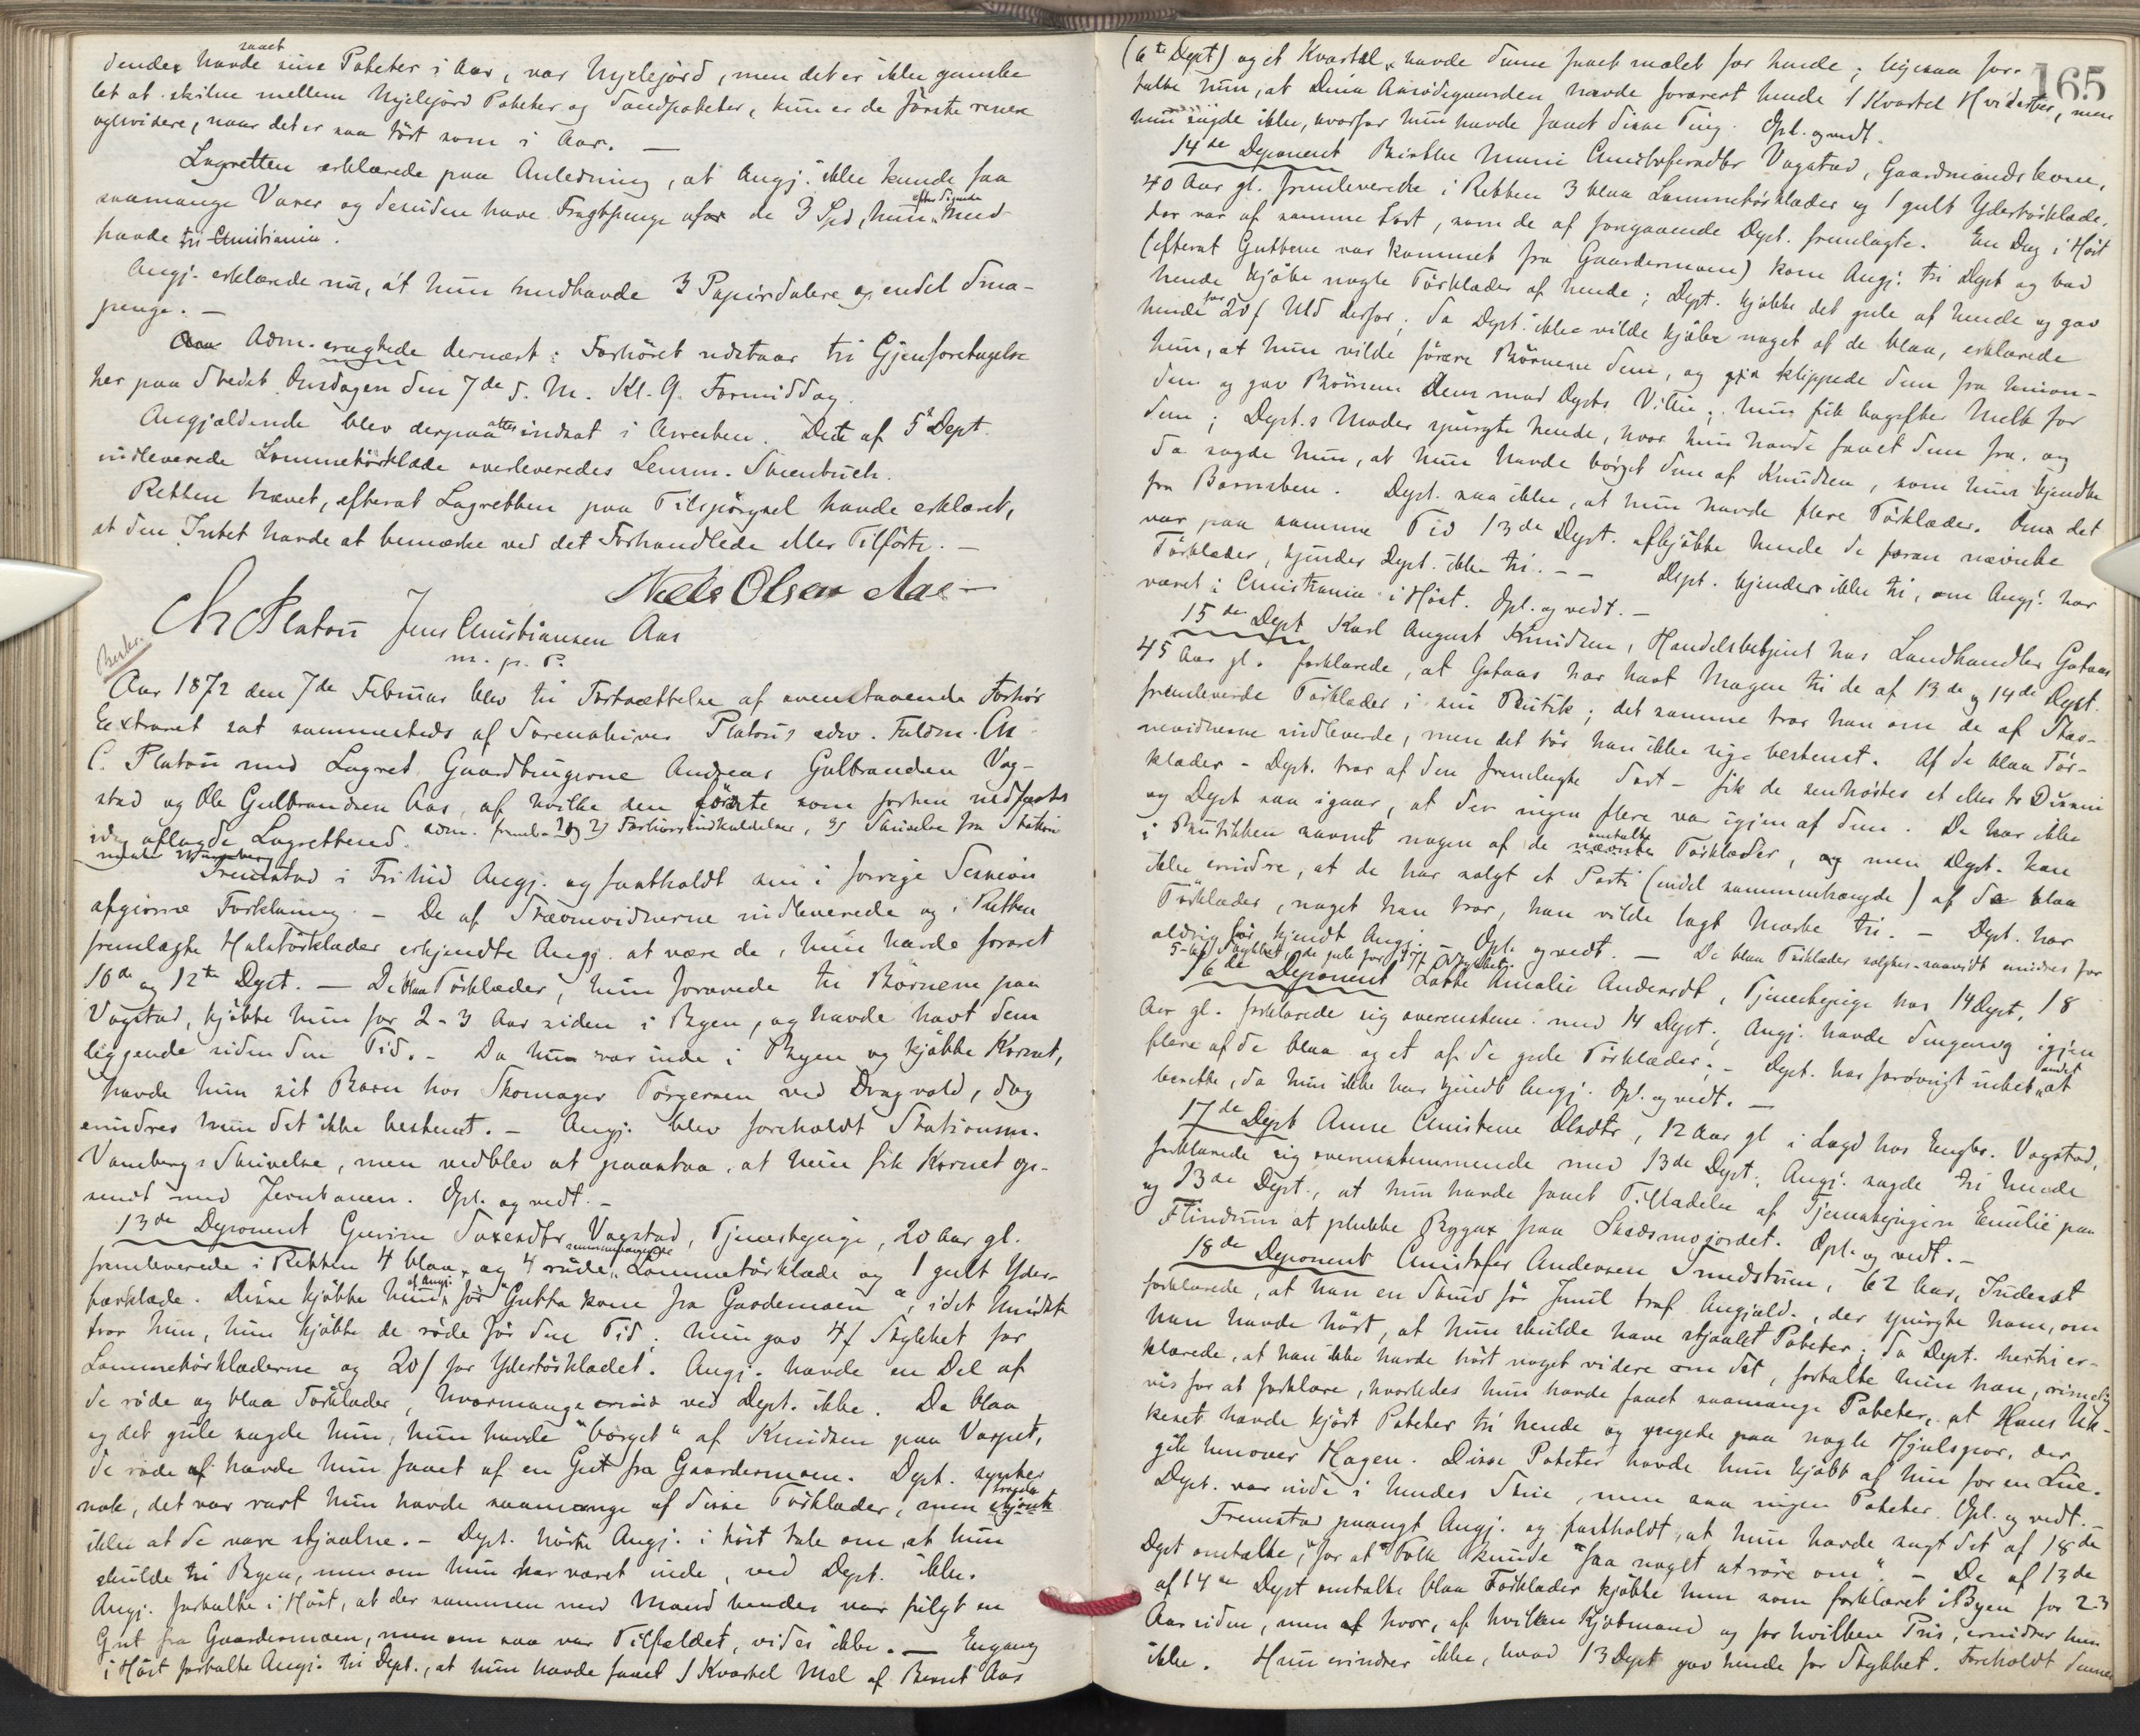 dende havde saaet sine Poteter i Aar, var Myrlejord, men det er ikke ganske
let at skilne mellem Myrlejord Poteter og Sandpoteter, kun er de første renere
og hvidere, naar det er saa tørt som i Aar. —
Lagretten erklærede paa Anledning, at Angj. ikke kunde faa
saamange Varer og desuden have Fragtpenge af de 3 Spd, hun efter Sigende med-
havde til Christiania.
Angj. erklærede nu, at hun medhavde 3 Papirdalere og endel Smaa-
penge. —
Adm. eragtede dernæst: Forhøret udstaar til Gjenforetagelse
her paa Stedet Onsdagen den 7de d. M. Kl. 9 Formiddag.
Angjældende blev derpaa atter indsat i Arresten. Det af 5te Dept.
indleverede Lommetørklæde overleveredes Lensm. Steenbuch.
Retten hævet, efterat Lagretten paa Tilspørgsel havde erklæret,
at den Intet havde at bemærke ved det Forhandlede eller Tilførte. —
Niels Olsen Aas
Chr. Platou Jens Christiansen Aas
m. p. P.
Aar 1872 den 7de Februar blev til Fortsættelse af ovenstaaende Forhør
Extraret sat sammesteds af Sorenskriver Platous edsv. Fuldm. Chr.
C. Platou med Lagret Gaardbrugerne Andreas Gulbrandsen Vog-
stad og Ole Gulbrandsen Aas, af hvilke den første som forhen
idag aflagde Lagretteed. Adm. freml. 1) og 2) Forhørsindkaldelser, 3) Skrivelse fra Station
mester Wamberg
Fremstod i Frihed Angj. og fastholdt sin i forrige Session
afgivne Forklaring. — De af Stævnevidnerne indleverede og i Retten
fremlagte Halstørklæder erkjendte Angj. at være de, hun havde foræret
10de og 12te Dept. — De blaa Tørklæder, hun forærede til Børnene paa
Vogstad, kjøbte hun for 2-3 Aar siden i Byen, og havde havt dem
liggende siden den Tid. — Da hun var inde i Byen og kjøbte Kornet,
havde hun sit Barn hos Skomager Torgersen ved Dragvold, dog
erindres hun det ikke bestemt. — Angj. blev foreholdt Stationsm.
Vambergs Skrivelse, men vedblev at paastaa, at hun fik Kornet op-
sendt med Jernbanen. Opl. og vedt. —
13de Deponent Gurine Vogstad, Tjenestepige, 20 Aar gl.
fremleverede i Retten 4 blaa og 4 røde sammenhængende Lommetørklæde og 1 gult Yder-
tørklæde. Disse kjøbte hun af Angj. før "Gutta kom fra Gardemoen", idet mindste
tror hun, hun kjøbte de røde før den Tid; hun gav 4 f Stykket for
Lommetørklæderne og 20 f for Ydertørklædet. Angj. havde en Del af
de røde og blaa Tørklæder, hvormange ved Dept. ikke. De blaa
og det gule sagde hun, hun havde "børget" af Knudsen paa Vorpet,
de røde havde hun faaet af en Gut fra Gaardermoen. Dept. syntes
nok, det var rart hun havde saamange af disse Tørklæder, men
ikke at de vare stjaalne. — Dept. hørte Angj. i høst tale om, at hun
skulde til Byen, men om hun har været inde, ved Dept. ikke.
Angj. fortalte i Høst, at der sammen med Mand hendes var fulgt en
Gut fra Gaardermoen, men om saa var Tilfældet, vides ikke. — Engang
i Høst fortalte Angj. til Dept., at hun havde faaet 1 Kvartel Mel af Bernt Aas
165
(6te Dept) og et Kvartel havde denne faaet malet for hende; ligesaa for-
talte hun, at Dina Aasødegaarden havde foræret hende 1 Kvartel Hvidert, men
hun sagde ikke, hvorfor hun havde faaet disse Ting. Opl. og vedt.
14de Deponent Birthe Marie Christofersdtr Vogstad, Gaardmandskone,
40 Aar gl. fremleverede i Retten 3 blaa Lommetørklæder og 1 gult Ydertørklæde,
der var af samme Sort, som de af foregaaende Dept. fremlagte. En Dag i Høst
(efterat Guttene var kommet fra Gaardermoen) kom Angj. til Dept og bad
hende kjøbe nogle Tørklæder af hende; Dept. kjøbte det gule af hende og gav
hende for 20 f Uld derfor; da Dept. ikke vilde kjøbe noget af de blaa, erklærede
hun, at hun vilde forære Børnene dem, og klippede dem fra hinan-
den og gav Børnene dem mod Depts Villie; hun fik bagefter Melk for
dem; Dept.s Moder spurgte hende, hvor hun havde faaet dem fra, og
da sagde hun, at hun havde børget dem af Knudsen, som hun kjendte
fra Barnsben. Dept. saa ikke, at hun havde flere Tørklæder. Om det
var paa samme Tid 13de Dept. afkjøbte hende de foran nævnte
Tørklæder, kjender Dept. ikke til. — — Dept. kjender ikke til, om Angj. har
været i Christiania i Høst. Opl. og vedt. —
15de Dept Karl August Knudsen, Handelsbetjent hos Landhandler Gotaas
45 Aar gl. forklarede, at Gotaas har havt Magen til de af 13de og 14de Dept.
fremleverede Tørklæder i sin Butik; det samme tror han om de af Stæv-
nevidnerne indleverede, men det tør han ikke sige bestemt. Af de blaa Tør-
klæder - Dept. tror af den fremlagte Sort - fik de senhøstes et eller to Dusin
og Dept saa igaar, at der ingen flere var igjen af dem. De har ikke
i Butikken savnet nogen af de omtalte Tørklæder, men Dept. kan
ikke erindre, at de har solgt et Parti (endel sammenhængde) af de blaa
Tørklæder, noget han tror, han vilde lagt Mærke til. — Dept. har
aldrig før kjendt Angj. — Opl. og vedt. — De blaa Tørklæder solgtes saavidt erindres for
5-6 f Stykket, de gule for 17 f Stykket.
16de Deponent Lotte Amalie Andersdt, Tjenestepige hos 14 Dept, 18
Aar gl. forklarede sig overenstem. med 14 Dept; Angj. havde dengang igjen
flere af de blaa og et af de gule Tørklæder. — Dept. har forøvrigt intet andet at
berette, da hun ikke har kjendt Angj. Opl. og vedt. —
17de Dept Anne Christine Olsdtr, 12 Aar gl i Lægd hos Engbr. Vogstad,
forklarede sig overenstemmende med 13de Dept; Angj. sagde til hende
og 13de Dept., at hun havde faaet Tilladelse af Tjenestepigen Emilie paa
Flindrum at plukke Bygax paa Skedsmojordet. Opl. og vedt. —
18de Deponent Christofer Andersen Smedstuen, 62 Aar, Inderst
forklarede, at han en Stund før Juul traf Angjæld., der spurgte ham, om
han havde hørt, at hun skulde have stjaalet Poteter; da Dept. hertil er-
klærede, at han ikke havde hørt noget videre om det, fortalte hun ham, rimelig
vis for at forklare, hvorledes hun havde faaet saamange Poteter, at Hans
havde kjørt Poteter til hende og pegede paa nogle Hjulspor, der
gik henover Hagen. Disse Poteter havde hun kjøbt af him for en Lue.
Dept. var inde i hendes Stue, men saa ingen Poteter. Opl. og vedt. —
Fremstod paanyt Angj. og fastholdt, at hun havde sagt det af 18de
Dept omtalte, "for at Folk kunde faa noget at røre om". — De af 13de
af 14de Dept omtalte blaa Tørklæder kjøbte hun som forklaret i Byen for 2-3
Aar siden, men hvor, af hvilken Kjøbmand og for hvilken Pris, erindrer hun
ikke. Hun erindrer ikke, hvad 13 Dept gav hende for Stykket. Foreholdt dennes